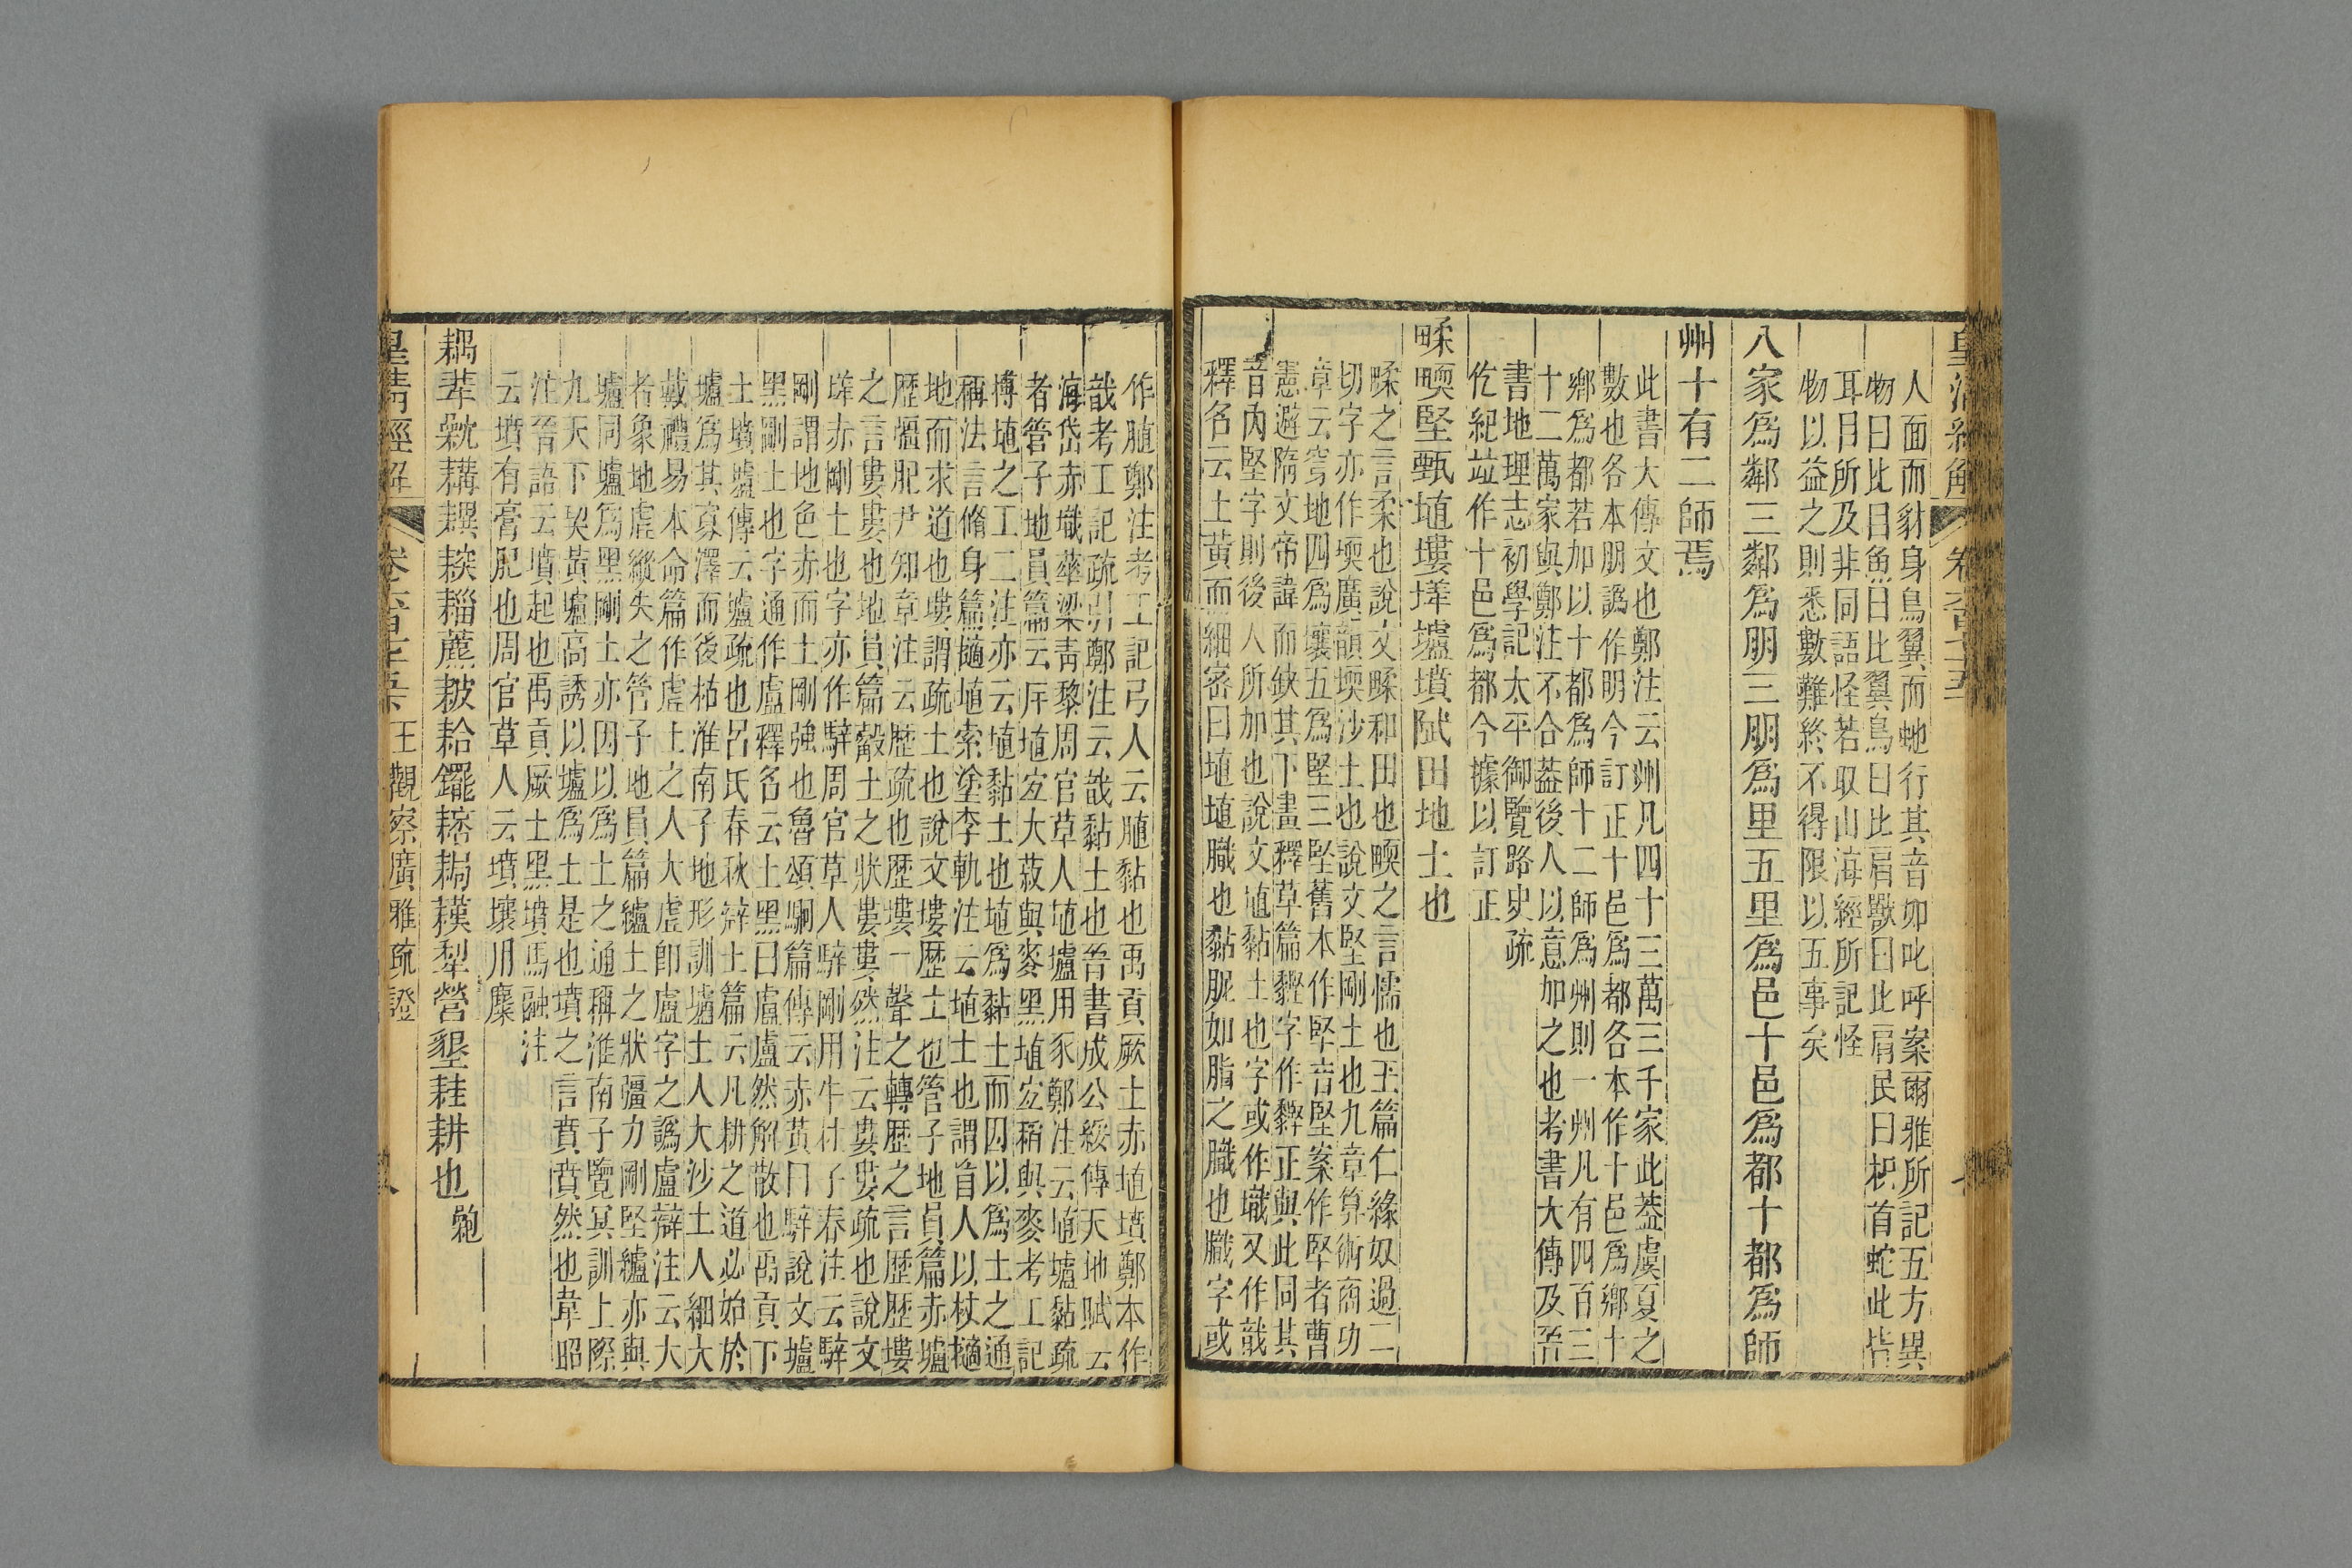 人面而豺身鳥翼而蛇行其音如叱呼案爾雅所記五方異
物曰比目魚曰比翼鳥曰比肩獸曰比肩民曰枳首蛇此皆
耳目所及非同語怪若取山海經所記怪
物以益之則悉數難終不得限以五事矣
八家爲鄰三鄰爲朋三朋爲里五里爲邑十邑爲都十都爲師
州十有二師焉
此書大傳文也鄭注云州凡四十三萬三千家此葢虞夏之
數也各本朋譌作明今訂正十邑爲都各本作十邑爲鄉十
鄉爲都若加以十都爲師十二師爲州則一州凡有四百三
十二萬家與鄭注不合葢後人以意加之也考書大傳及晉
書地理志初學記太平御覽路史疏
仡紀竝作十邑爲都今據以訂正
㽥㽭堅甄埴塿墡壚墳陚田地土也
㽥之言柔也說文㽥和田也㽭之言懦也玉篇仁緣奴過二
切字亦作堧廣韻堧沙土也說文堅剛土也九章算術商功
章云穿地四爲壤五爲堅三堅舊本作堅音堅案作堅者曹
憲避隋文帝諱而缺其下畫釋草篇䝂字作䝂正與此同其
音內堅字則後人所加也說文埴黏土也字或作壏又作戠
釋名云土黃而細密曰埴埴膱也黏胒如脂之膱也膱字或
作䐈鄭注考工記弓人云䐈黏也禹貢厥土赤埴墳鄭本作
戠考工記疏引鄭注云戠黏土也晉書成公綏傳天地賦云
海岱赤壏華梁靑黎周官草人埴壚用豕鄭注云埴壚黏疏
者管子地員篇云斥埴宜大菽與麥黑埴宜稻與麥考工記
摶埴之工二注亦云埴黏土也埴爲黏土而因以爲土之通
稱法言脩身篇擿埴索塗李軌注云埴土也謂盲人以杖擿
地而求道也塿謂疏土也說文塿歷土也管子地員篇赤壚
歷彊肥尹知章注云歷疏也歷塿一聲之轉歷之言歷歷塿
之言婁婁也地員篇觳土之狀婁婁然注云婁婁疏也說文
墡赤剛土也字亦作騂周官草人騂剛用牛杜子春注云騂
剛謂地色赤而土剛強也魯頌駉篇傳云赤黃曰騂說文壚
黑剛土也字通作盧釋名云土黑曰盧盧然解散也禹貢下
土墳壚傳云壚疏也呂氏春秋辯土篇云凡耕之道必始於
壚爲其寡澤而後枯淮南子地形訓壚土人大沙土人細大
戴禮易本命篇作虛土之人大虛卽盧字之譌盧辯注云大
者象地虛縱失之管子地員篇纑土之狀彊力剛堅纑亦與
壚同壚爲黑剛土亦因以爲土之通稱淮南子覽冥訓上際
九天下契黃壚高誘以壚爲土是也墳之言賁賁然也韋昭
注晉語云墳起也禹貢厥土黑墳馬融注
云墳有膏肥也周官草人云墳壤用麋
耕也
皇淸經解 卷六百七十五 王觀察廣雅疏證